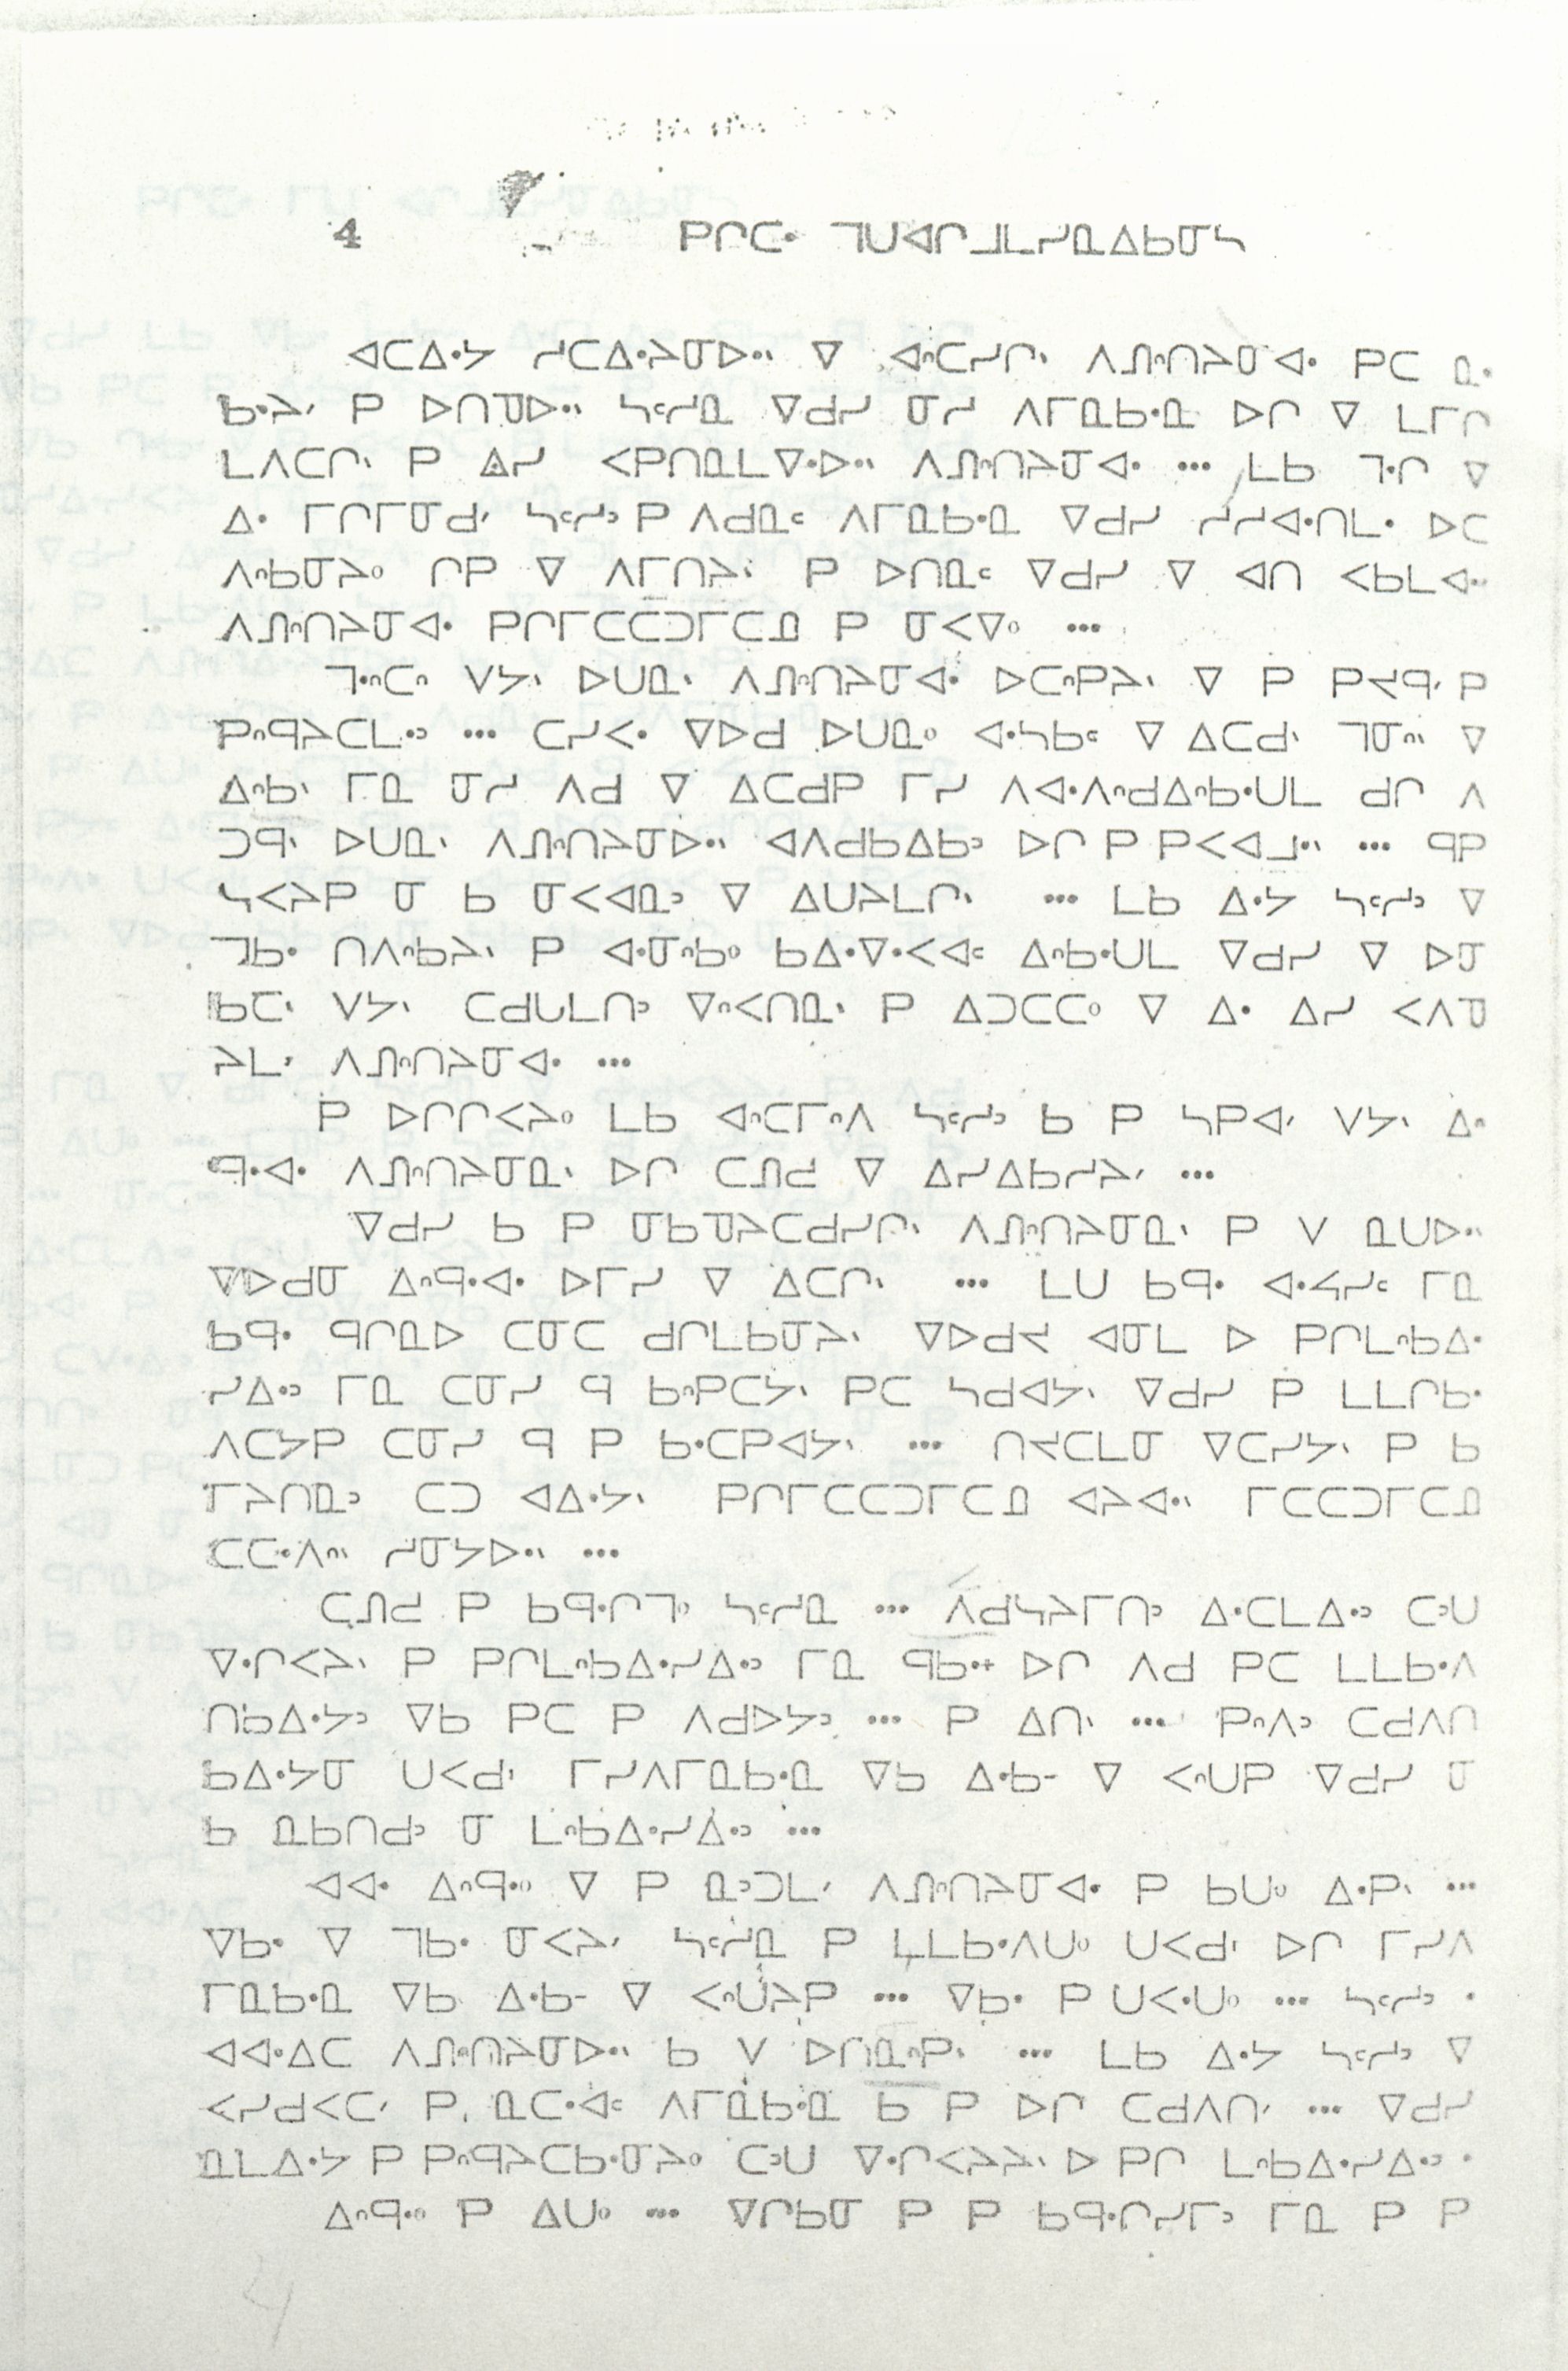 4 ᑭᒋᑕᐧ ᒣᑌᐊᒋᒧᒪᓯᓇᐃᑲᓂᓴ
ᐊᑕᐃᐧᔭ ᓱᑕᐃᐧᔨᓂᐅᐧᐦ ᐁ ᐊᐧᐢᑕᓯᒋᐠ ᐱᓕᐢᑎᔨᓂᐊᐧ ᑭᑕ ᓇᐧ
ᑲᐧᔨᐟ ᑭ ᐅᑎᓀᐅᐧᐦ ᓴᒼᓱᓇ ᐁᑯᓯ ᓂᓱ ᐱᒥᓇᑲᐧᓇ ᐅᒋ ᐁ ᒪᒥᒋ
ᒪᐱᑕᒋᐠ ᑭ ᐃᓯ ᐸᑭᑎᓇᒪᐁᐧᐅᐧᐦ ᐱᓕᐢᑎᔨᓂᐊᐧ ... ᒪᑲ ᒣᐧᒋ ᐁ
ᐃᐧ ᒥᒋᒥᓂᑯᐟ ᓴᒼᓱᐣ ᑭ ᐱᑯᓇᒼ ᐱᒥᓇᑲᐧᓇ ᐁᑯᓯ ᓱᓱᐊᐧᑎᒪᐧ ᐅᑕ
ᐱᐢᑲᓂᔨᐤ ᒋᑭ ᐁ ᐱᒥᑎᔨᐠ ᑭ ᐅᑎᓇᒼ ᐁᑯᓯ ᐁ ᐊᑎ ᐸᑲᒪᐊᐧ
ᐱᓕᐢᑎᔨᓂᐊᐧ ᑭᒋᒥᑕᑕᑐᒥᑕᓇ ᑭ ᓂᐸᐁᐤ ...
ᒣᐧᐢᑕᐢ ᐯᔭᐠ ᐅᑌᓇᐠ ᐱᓕᐢᑎᔨᓂᐊᐧ ᐅᑕᐢᑭᔨᐠ ᐁ ᑭ ᑭᔪᑫᐟ ᑭ
ᑭᐢᑫᔨᑕᒪᐧᐣ ... ᑕᓯᐸᐧ ᐁᐅᑯ ᐅᑌᓇᐤ ᐊᐧᓴᑲᒼ ᐁ ᐃᑕᑯᐠ ᒣᓂᐢᐠ ᐁ
ᐃᐢᑲᐠ ᒥᓇ ᓂᓱ ᐱᑯ ᐁ ᐃᑕᑯᑭ ᒥᓯ ᐱᐊᐧᐱᐢᑯᐃᐢᑲᐧᑌᒪ ᑯᒋ ᐱ
ᑐᑫᐠ ᐅᑌᓇᐠ ᐱᓕᐢᑎᔨᓂᐅᐧᐦ ᐊᐱᑯᑲᐃᑲᐣ ᐅᒋ ᑭ ᑭᐸᐊᒧᐧᐠ ... ᑫᑭ
ᓴᐸᔨᑭ ᓂ ᑲ ᓂᐸᐊᓇᐣ ᐁ ᐃᑌᔨᒪᒋᐠ ... ᒪᑲ ᐃᐧᔭ ᓴᒼᓱᐣ ᐁ
ᒣᑲᐧ ᑎᐱᐢᑲᔨᐠ ᑭ ᐊᐧᓂᐢᑲᐤ ᑲᐃᐧᐁᐧᐸᐊᒼ ᐃᐢᑲᐧᑌᒪ ᐁᑯᓯ ᐁ ᐅᓂ
ᑲᑕᐠ ᐯᔭᐠ ᑕᑯᒐᒪᑎᐣ ᐁᐢᐸᑎᓇᐠ ᑭ ᐃᑐᑕᑕᐤ ᐁ ᐃᐧ ᐃᓯ ᐸᐱᓀ
ᔨᒪᐟ ᐱᓕᐢᑎᔨᓂᐊᐧ ...
ᑭ ᐅᒋᒋᐸᔨᐤ ᒪᑲ ᐊᐧᐢᑕᒥᐢᐱ ᓴᒼᓱᐣ ᑲ ᑭ ᓴᑭᐊᐟ ᐯᔭᐠ ᐃᐢ
ᑫᐧᐊᐧ ᐱᓕᐢᑎᔨᓂᓇᐠ ᐅᒋ ᑕᓕᓗ ᐁ ᐃᓯᐃᑲᓱᔨᐟ ...
ᐁᑯᓯ ᑲ ᑭ ᓂᑲᓀᔨᑕᑯᓯᒋᐠ ᐱᓕᐢᑎᔨᓂᓇᐠ ᑭ ᐯ ᓇᑌᐅᐧᐦ
ᐁᐅᑯᓂ ᐃᐢᑫᐧᐊᐧ ᐅᒥᓯ ᐁ ᐃᑕᒋᐠ ... ᒪᑌ ᑲᑫᐧ ᐊᐧᔦᓯᒼ ᒥᓇ
ᑲᑫᐧ ᑫᒋᓇᐅ ᑕᓂᑕ ᑯᒋᒪᑲᓂᔨᐠ ᐁᐅᑯᔪ ᐊᓂᒪ ᐅ ᑭᒋᒪᐢᑲᐃᐧ
ᓯᐃᐧᐣ ᒥᓇ ᑕᓂᓯ ᑫ ᑲᐢᑭᑕᔭᐠ ᑭᑕ ᓴᑯᐊᔭᐠ ᐁᑯᓯ ᑭ ᒪᒪᒋᑲᐧ
ᐱᑕᔭᑭ ᑕᓂᓯ ᑫ ᑭ ᑲᐧᑕᑭᐊᔭᐠ ... ᑎᔪᑕᒪᓂ ᐁᑕᓯᔭᐠ ᑭ ᑲ
ᒥᔨᑎᓇᐣ ᑕᑐ ᐊᐃᐧᔭᐠ ᑭᒋᒥᑕᑕᑐᒥᑕᓇ ᐊᔨᐊᐧᐠ ᒥᑕᑕᑐᒥᑕᓇ
ᑕᑕᐧᐱᐢᐠ ᓱᓂᔭᐅᐧᐦ ...
ᑕᓕᓗ ᑭ ᑲᑫᐧᒋᒣᐤ ᓴᒼᓱᓇ ... ᐱᑯᓴᔨᒥᑎᐣ ᐃᐧᑕᒪᐃᐧᐣ ᑕᐣᑌ
ᐁᐧᒋᐸᔨᐠ ᑭ ᑭᒋᒪᐢᑲᐃᐧᓯᐃᐧᐣ ᒥᓇ ᑫᑲᐧᐩ ᐅᒋ ᐱᑯ ᑭᑕ ᒪᒪᑲᐧᐱ
ᑎᑲᐃᐧᔭᐣ ᐁᑲ ᑭᑕ ᑭ ᐱᑯᐅᔭᐣ ... ᑭ ᐃᑎᐠ ... ᑭᐢᐱᐣ ᑕᑯᐱᑎ
ᑲᐃᐧᔭᓂ ᑌᐸᑯᐦ ᒥᓯᐱᒥᓇᑲᐧᓇ ᐁᑲ ᐃᐧᑲᐨ ᐁ ᐸᐢᑌᑭ ᐁᑯᓯ ᓂ
ᑲ ᓇᑲᑎᑯᐣ ᓂ ᒪᐢᑲᐃᐧᓯᐃᐧᐣ ...
ᐊᐊᐧ ᐃᐢᑫᐧᐤ ᐁ ᑭ ᓇᐣᑐᒪᐟ ᐱᓕᐢᑎᔨᓂᐊᐧ ᑭ ᑲᑌᐤ ᐃᐧᑭᐠ ...
ᐁᑲᐧ ᐁ ᒣᑲᐧ ᓂᐸᔨᐟ ᓴᒼᓱᓇ ᑭ ᒪᒪᑲᐧᐱᑌᐤ ᑌᐸᑯᐦ ᐅᒋ ᒥᓯᐱ
ᒥᓇᑲᐧᓇ ᐁᑲ ᐃᐧᑲᐨ ᐁ ᐸᐢᑌᔨᑭ ... ᐁᑲᐧ ᑭ ᑌᐸᐧᑌᐤ ... ᓴᒼᓱᐣ ᐧ
ᐊᐊᐧᐃᑕ ᐱᓕᐢᑎᔨᓂᐅᐧᐦ ᑲ ᐯ ᐅᑎᓇᐢᑭᐠ ... ᒪᑲ ᐃᐧᔭ ᓴᒼᓱᐣ ᐁ
ᐸᓯᑯᐸᑕᐟ ᑭ ᓇᑕᐧᐊᒼ ᐱᒥᓇᑲᐧᓇ ᑲ ᑭ ᐅᒋ ᑕᑯᐱᑎᐟ ... ᐁᑯᓯ
ᓇᒪᐃᐧᔭ ᑭ ᑭᐢᑫᔨᑕᑲᐧᓂᔨᐤ ᑕᐣᑌ ᐁᐧᒋᐸᔨᔨᐠ ᐅ ᑭᒋ ᒪᐢᑲᐃᐧᓯᐃᐧᐣ ᐧ
ᐃᐢᑫᐧᐤ ᑭ ᐃᑌᐤ ... ᐁᒋᑲᓂ ᑭ ᑭ ᑲᑫᐧᒋᓯᒥᐣ ᒥᓇ ᑭ ᑭ